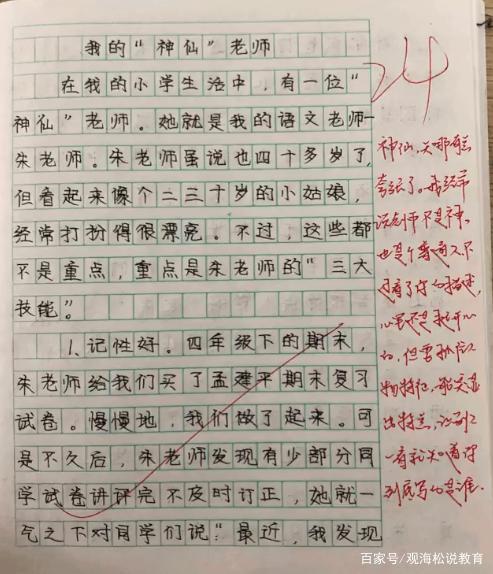 我的“神仙”老师
在我的小学生活中，有一位“
神仙”老师。她就是我的语文老师—
朱老师。朱老师虽说也四十多岁了，
但看起来像个二三十岁的小姑娘，
经常打扮得很漂亮。不过，这些都
不是重点，重点是朱老师的“三大
技能”。
1、记性好。四年级下的期末，
朱老师给我们买了孟建平期末复习
试卷。慢慢地，我们做了起来。可
是不久后，朱老师发现有少部分同
学试卷讲评完不及时订正，她就一
气之下对同学们说：“最近，我发现
24
神仙，
夸张了。我经常
说老师不是神，
也是个普通人。不
过看了你的描述，
心里还是挺开心
的，但要抓住人
物特征，
出特点，让别人
一看就知道你
到底写的是谁。
百家号/观海松说教育